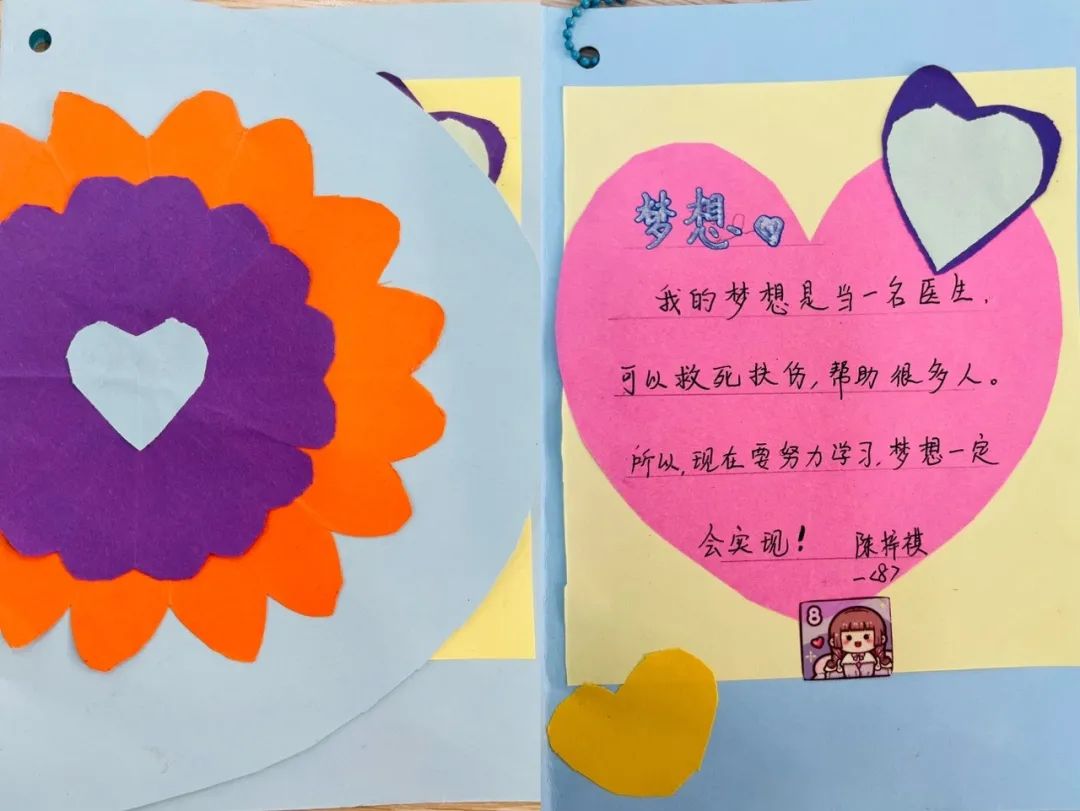 梦想
我的梦想是当一名医生,
可以救死扶伤,帮助很多人。
所以,现在要努力学习,梦想一定
会实现! 陈梓祺
一<8>
8